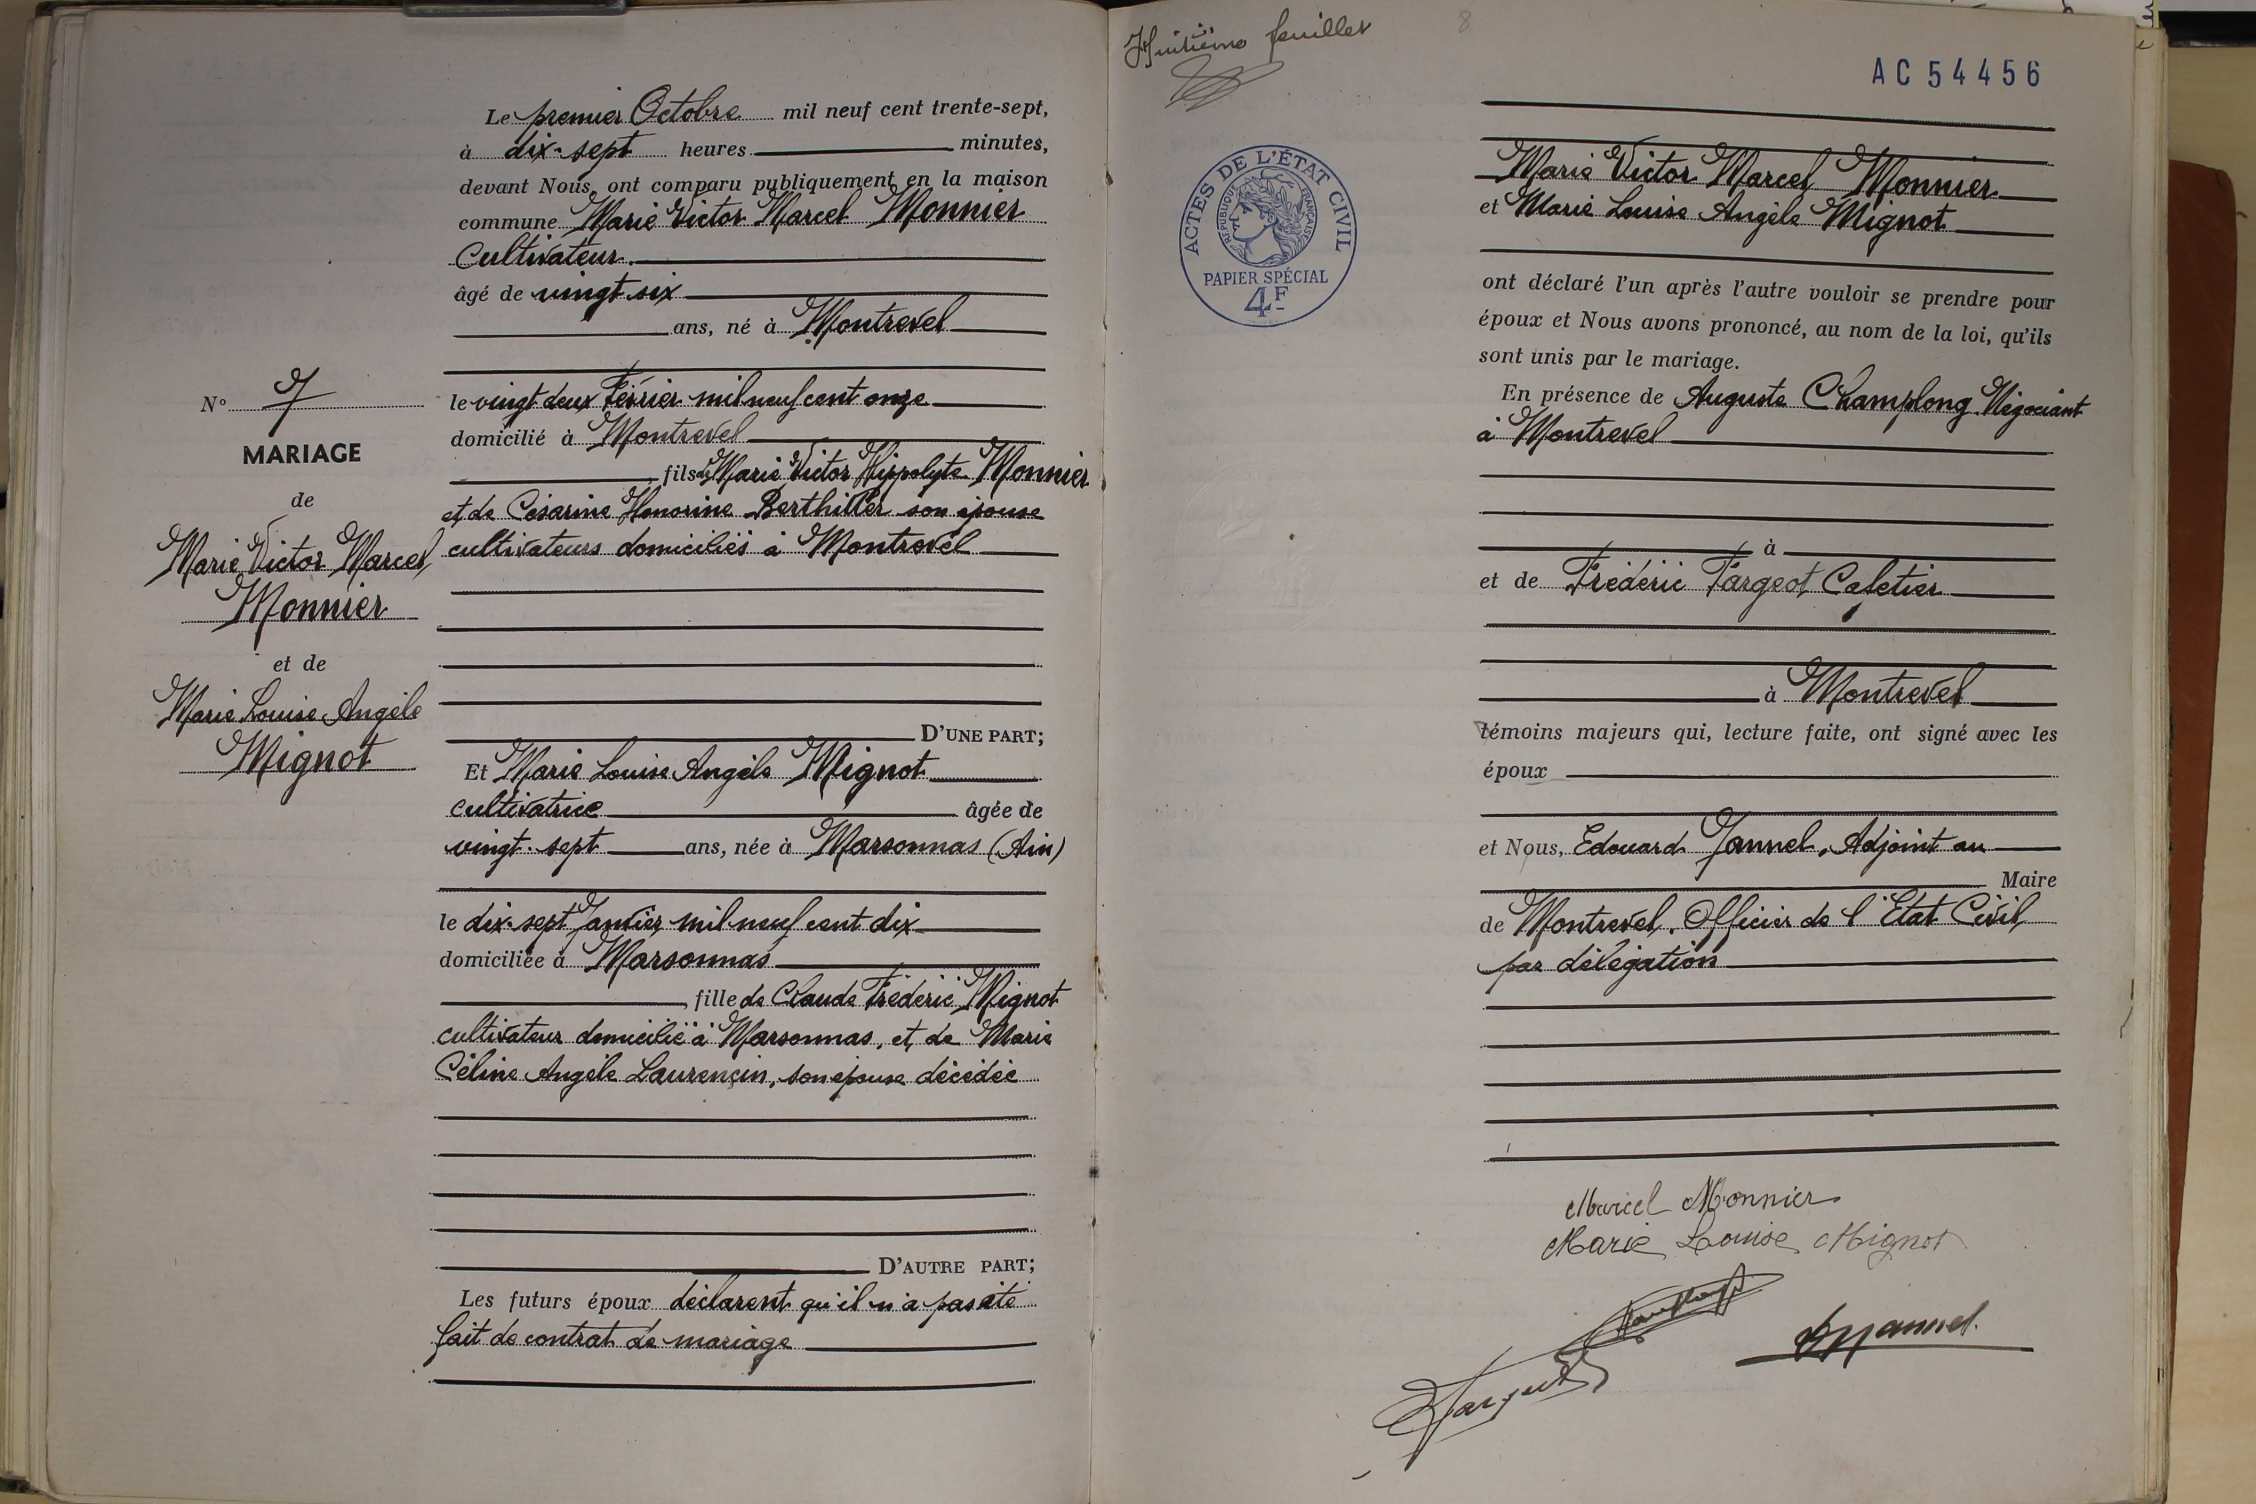 Le premier Octobre mil neuf cent trente-sept,
à dix-sept heures minutes,
devant Nous ont comparu publiquement en la maison
commune Marie Victor Marcel Monnier
Cultivateur
âgé de vingt six
ans, né à Montrevel
le vingt deux Février mil neuf cent onze
domicilié à Montrevel
fils de Marie Victor Hippolyte Monnier
et de Césarine Honorine Berthillier son épouse
cultivateurs domiciliés à Montrevel
D'UNE PART;
Et Marie Louise Angèle Mignot
cultivatrice âgée de
vingt-sept ans, née à Marsonnas (Ain)
le dix-sept Janvier mil neuf cent dix
domiciliée à Marsonnas
fille de Claude Frédéric Mignot
cultivateur domicilié à Marsonnas, et de Marie
Céline Angèle Laurençin, son épouse décédée
D'AUTRE PART;
Les futurs époux déclarent qu'il n'a pas été
fait de contrat de mariage
N° 7
MARIAGE
de
Marie Victor Marcel
Monnier
et de
Marie Louise Angèle
Mignot
Huitième feuillet
8
AC 54456
ACTES DE L'ÉTAT CIVIL
RÉPUBLIQUE FRANÇAISE
PAPIER SPÉCIAL
4F
Marie Victor Marcel Monnier
et Marie Louise Angèle Mignot
ont déclaré l'un après l'autre vouloir se prendre pour
époux et Nous avons prononcé, au nom de la loi, qu'ils
sont unis par le mariage.
En présence de Auguste Champlong Négociant
à Montrevel
à
et de Frédéric Fargeot Cafetier
à Montrevel
témoins majeurs qui, lecture faite, ont signé avec les
époux
et Nous, Edouard Jannel, Adjoint au
Maire
de Montrevel, Officier de l'Etat Civil
par délégation
Marcel Monnier
Marie Louise Mignot